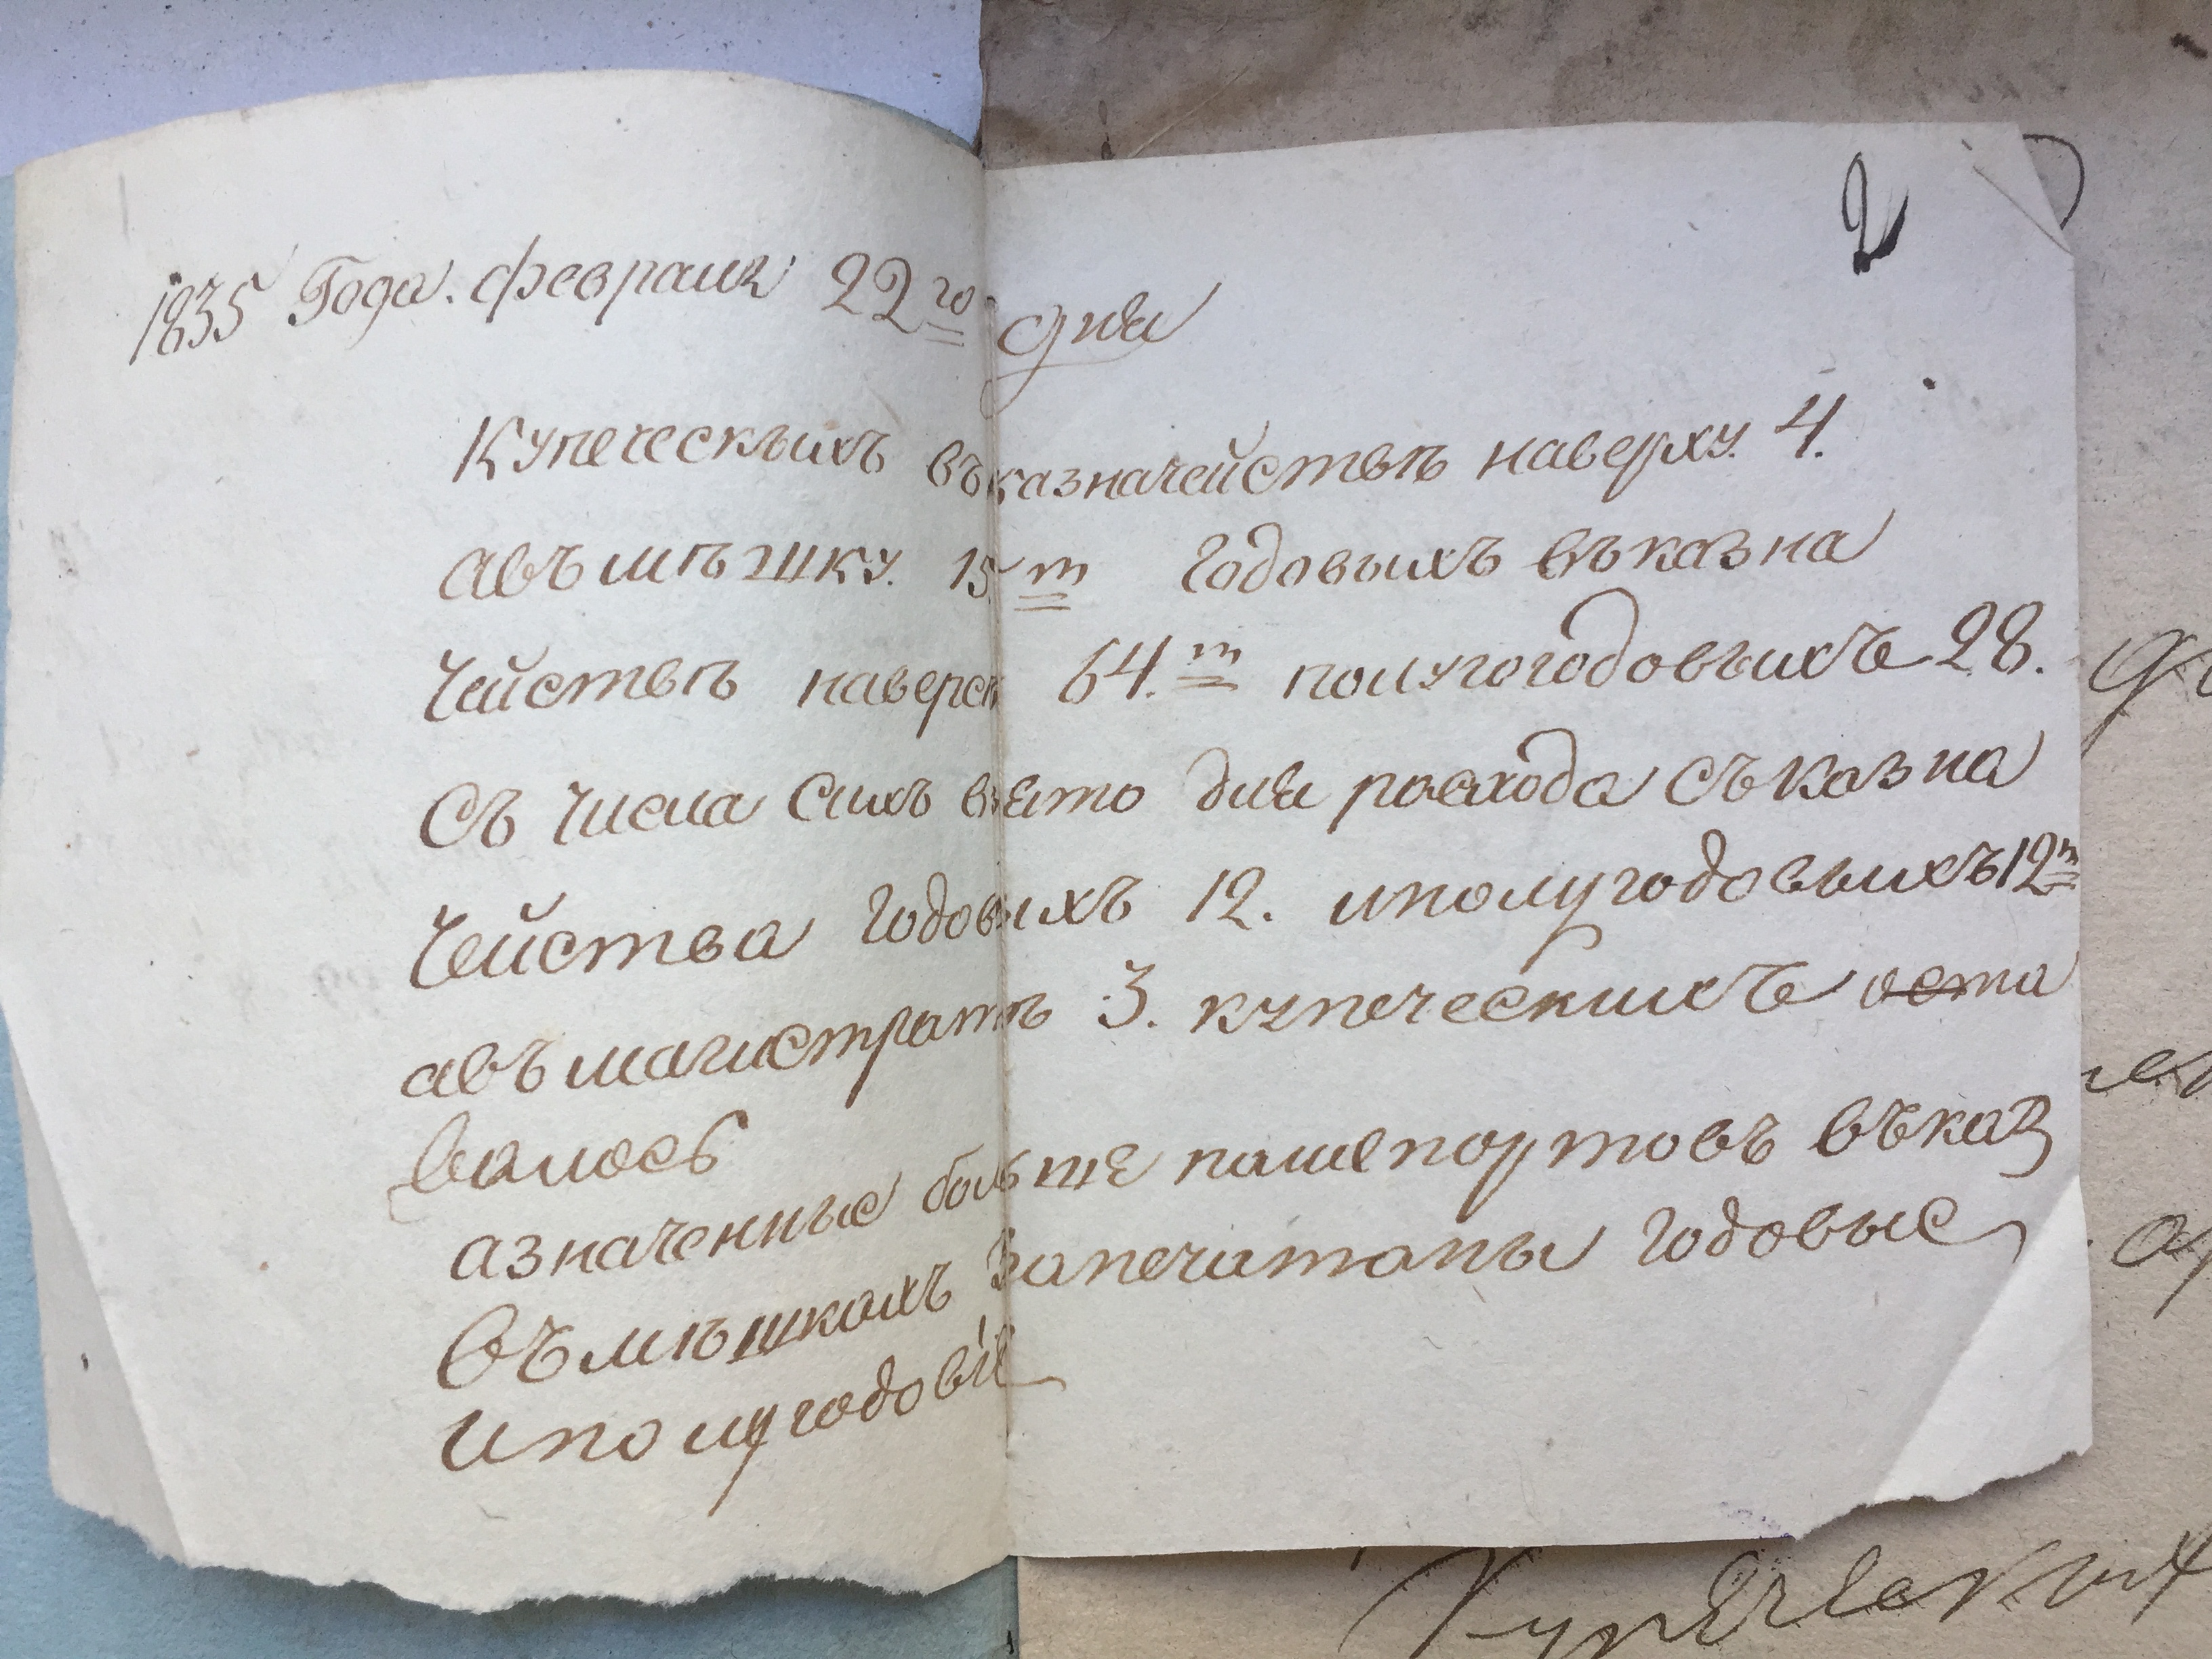 2
1835 Года. февраля 22го дня
Купеческыихъ въ казначействѣ наверху. 4.
авъ мѣшку. 15.т годовыхъ въ казна
чействѣ наверск 64.т полугогодовыихъ 28.
Съ числа сихъ взято для расхода съ казна
чейства годовыхъ 12. и полугодовыихъ 12т
авъ магистратѣ 3. купеческихъ оста
валось
азначенные больше пашепортовъ въ каз
въ мѣшкахъ запечатаны годовые
и полугодовые